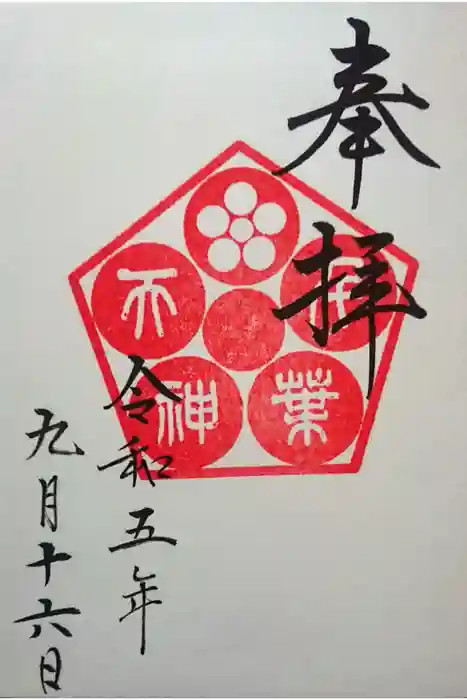 奉拝
葉
天
神
令和五年
九月十六日